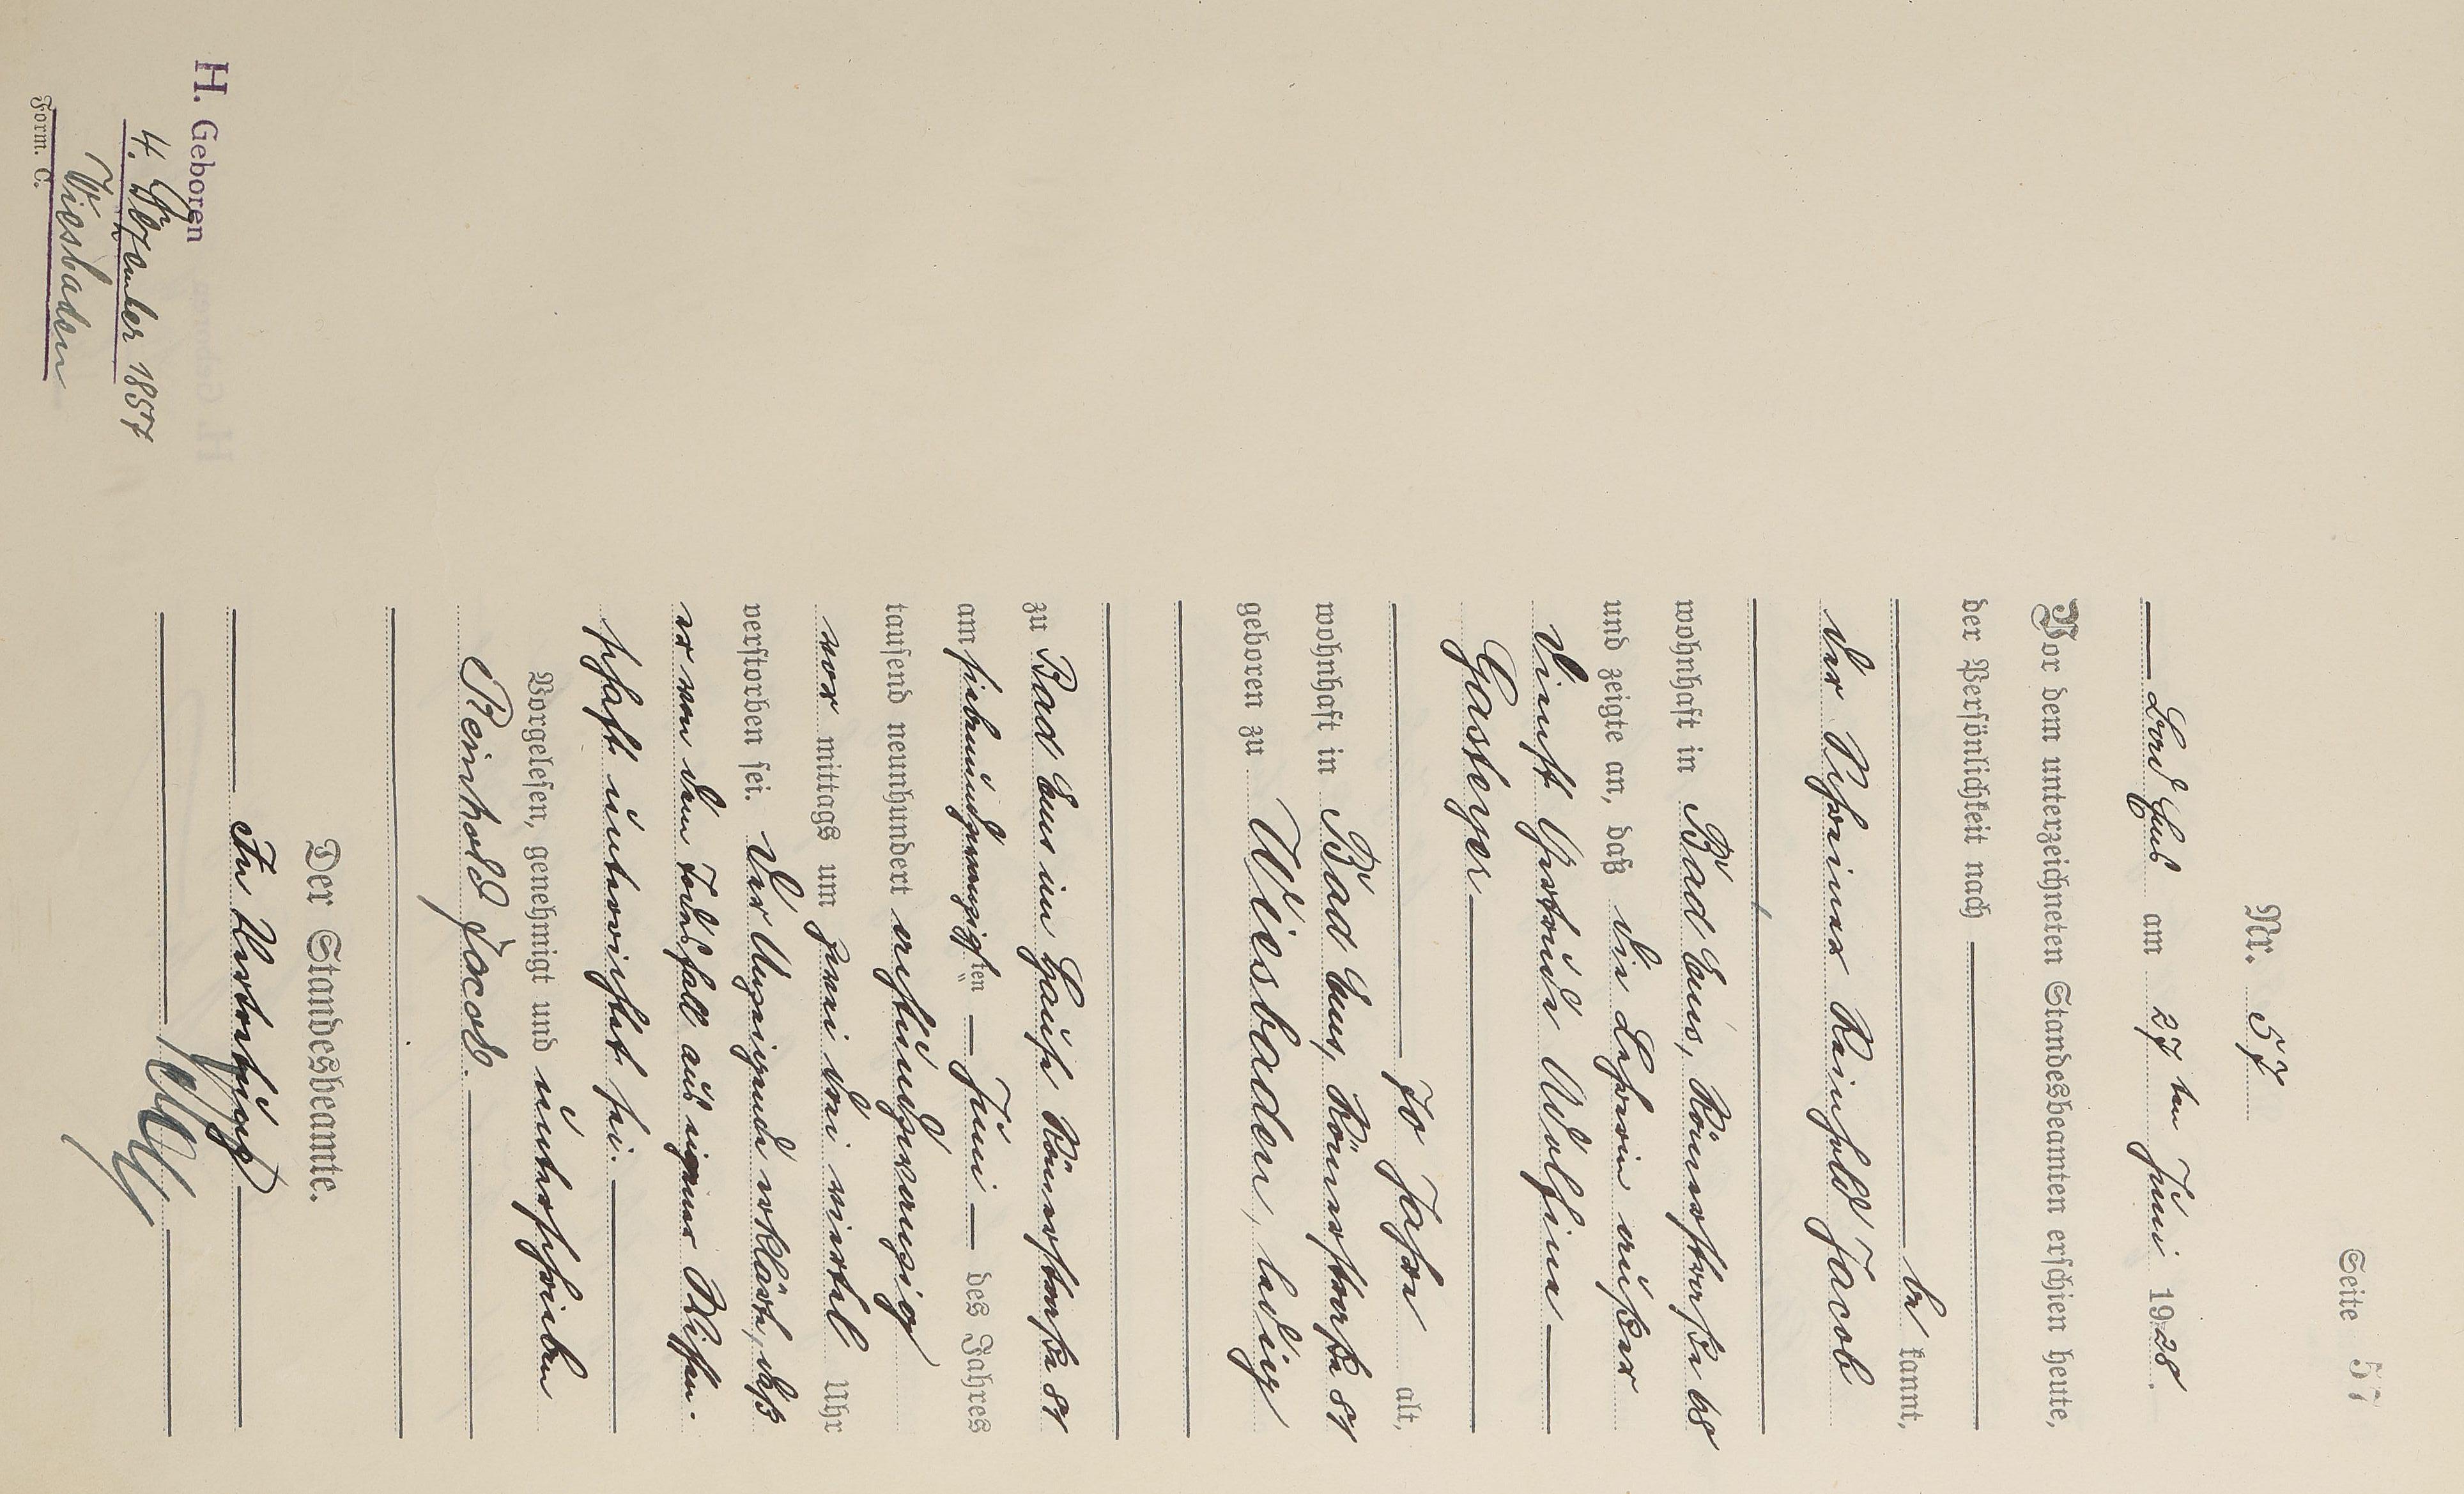 Seite 57
Nr. 57
Bad Ems am 27 ten Juni 1928.
Vor dem unterzeichneten Standesbeamten erschien heute,
der Persönlichkeit nach
be kannt,
der Schreiner Reinhold Jacob
wohnhaft in Bad Ems, Römerstraße 68
und zeigte an, daß die Lehrerin außer
Dienst Gertrude Adolfine
Gasteyer
70 Jahre alt,
wohnhaft in Bad Ems, Römerstraße 81
geboren zu Wiesbaden, ledig
zu Bad Ems im Hause Römerstraße 81
am siebenundzwanzigsten Juni des Jahres
tausend neunhundert achtundzwanzig
vor mittags um zwei drei viertel Uhr
verstorben sei. Der Anzeigende erklärte, daß
er von dem Todesfall aus eigener Wissen-
schaft unterrichtet sei.
Vorgelesen, genehmigt und unterschrieben
Reinhold Jacob.
Der Standesbeamte.
In Vertretung
H. Geboren
4. Dezember 1857
Wiesbaden
Form. C.